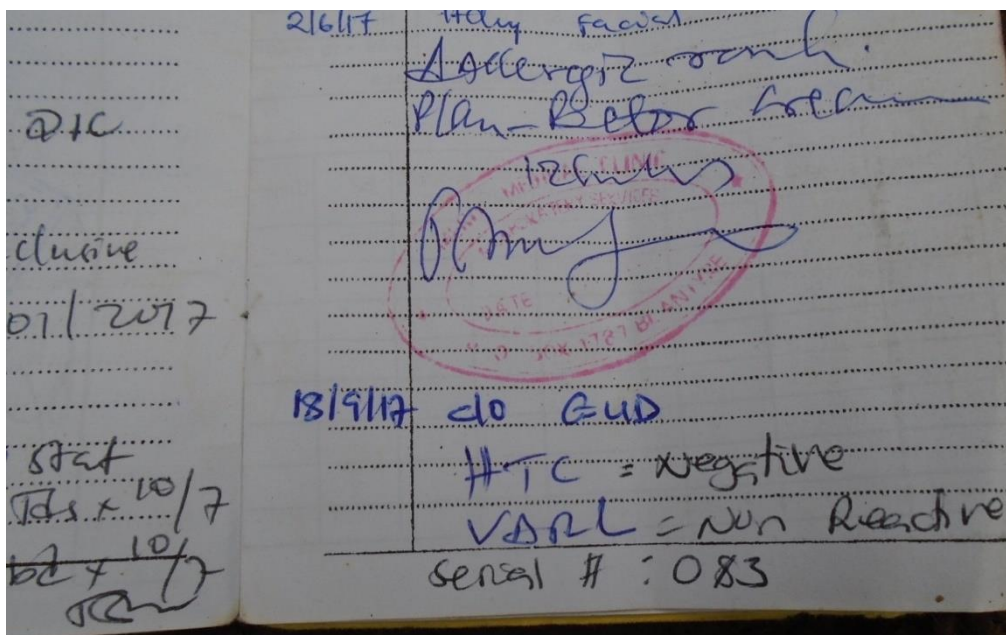 DIC
clusive
01/2017
stat
Tds x 10/7
bd x 10/7
2/6/17 Itchy facial
Plan - Cream
MEDICAL CLINIC
DATE
P.O. BOX 1787 BLANTYRE
18/9/17 c/o GUD
HTC = Negative
VDRL = Non Reactive
serial # : 083